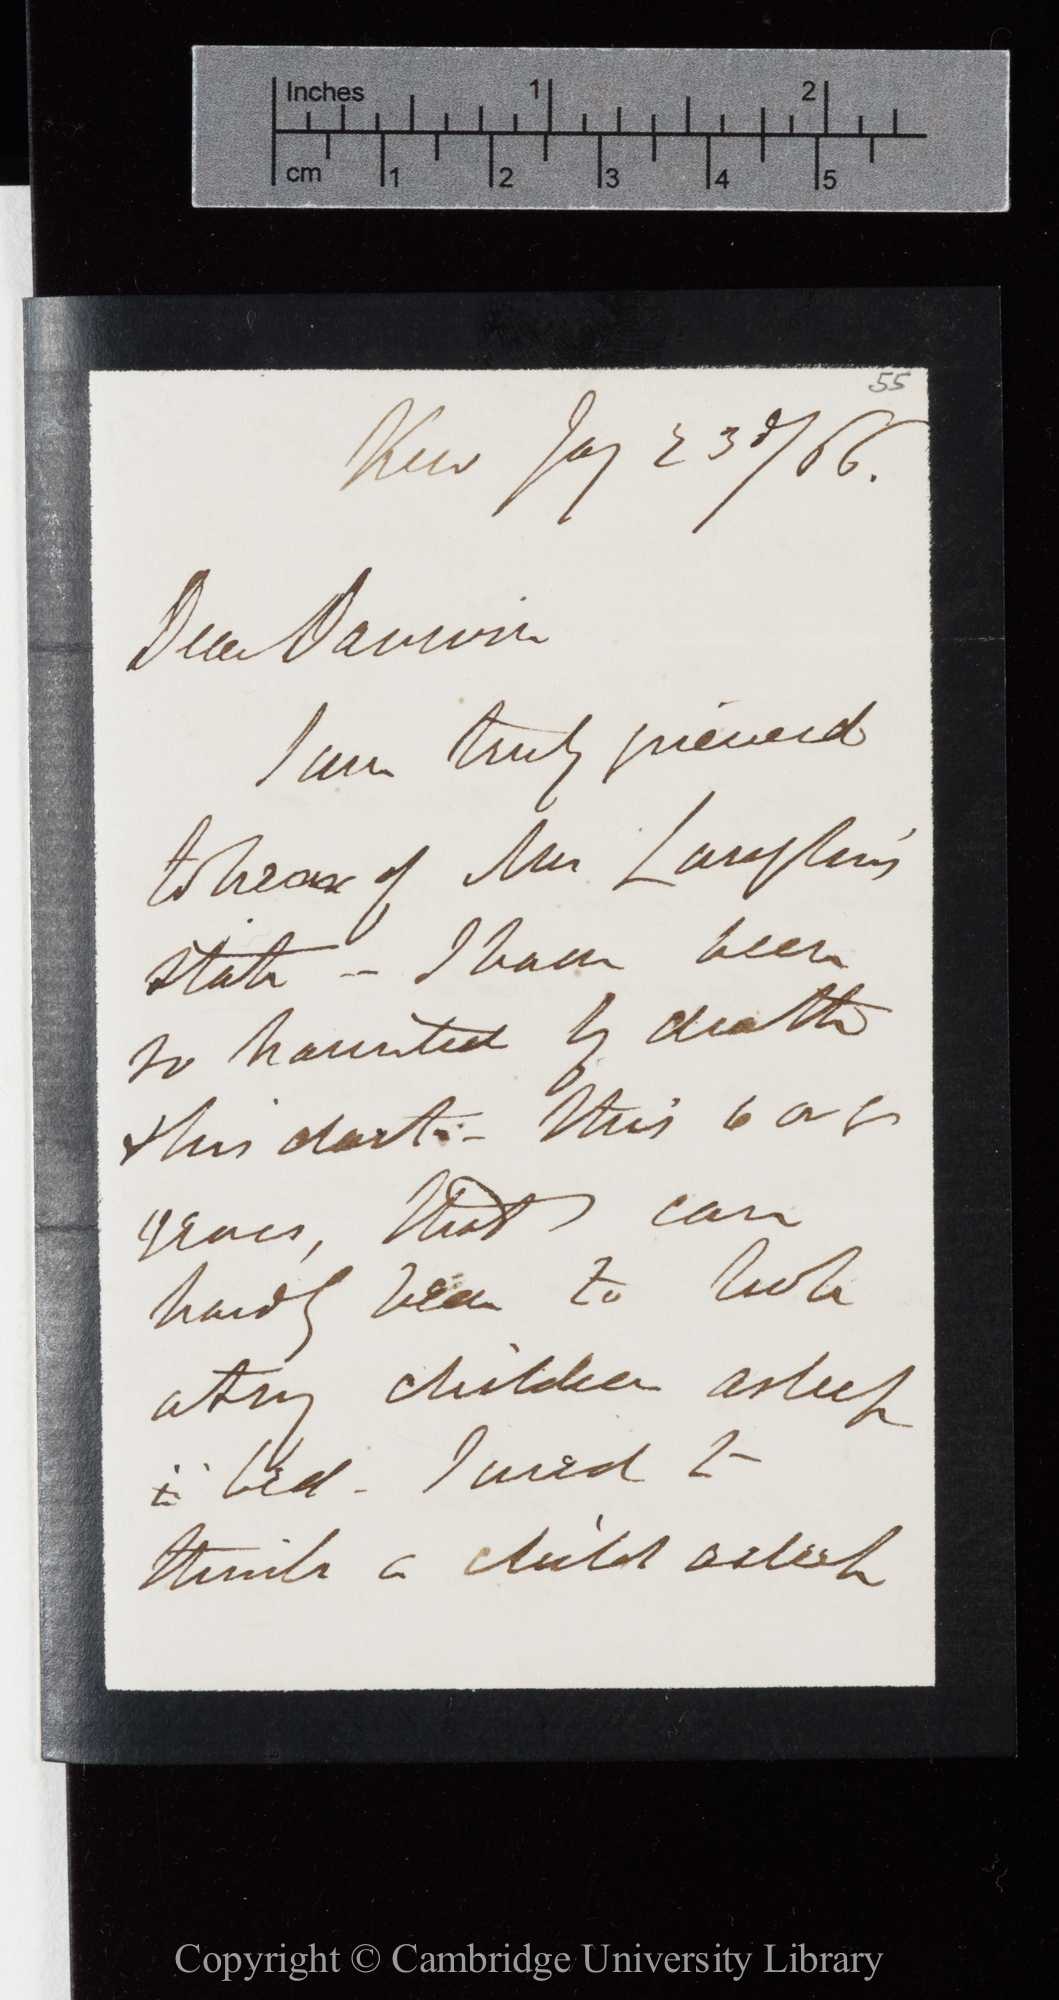 Inches 1 2
cm 1 2 3 4 5
55
Kew Jay 23d/66.
Dear Darwin
I am truly grieved
to hear of Mrs Langton's
state — I have been
so haunted by death
& his dart — this 6 or 8
years, that I can
hardly bear to look
at my children asleep
in bed — I used to
think a child asleep
Copyright © Cambridge University Library